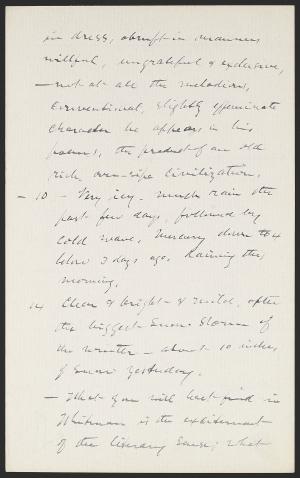 in dress, abrupt in manners
willful, ungrateful & exclusive,
— not at all the melodious,
conventional, slightly effeminate
character he appears in his
poems, the product of an old
rich, over-ripe civilization.
— 10 — Very icy. much rain the
past few days, followed by
cold wave, Mercury down to 4
below 3 days ago. Raining this
morning.
14 Clear & bright & mild, after
the biggest Snow Storm of
the winter — about 10 inches
of Snow yesterday.
— What you will least find in
Whitman is the excitement
of the literary sense; what